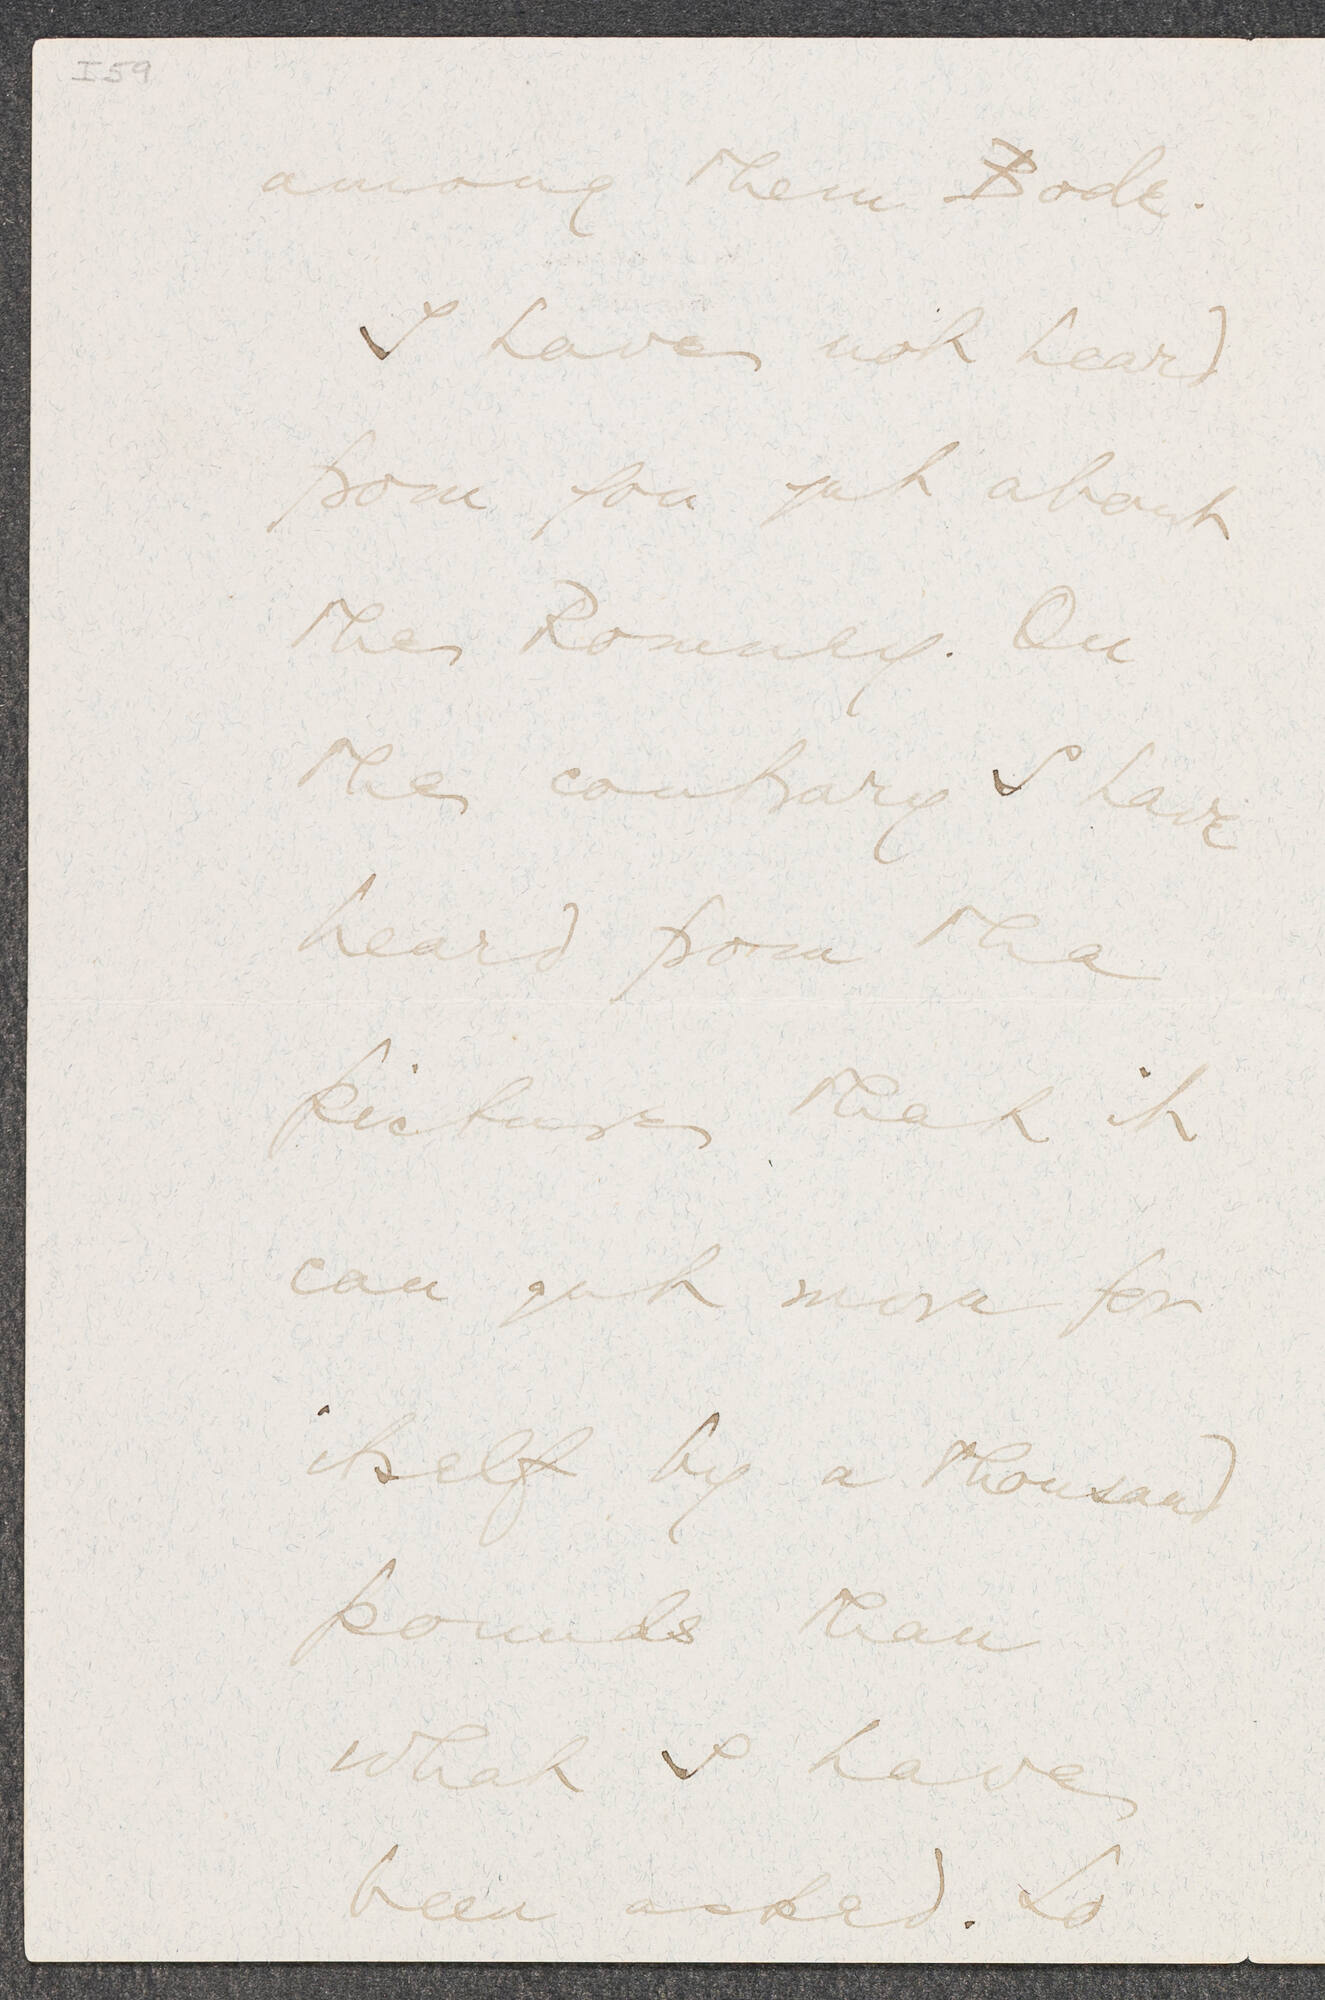 I 59
among them Bode.
I have not heard
from you yet about
the Romney. On
the contrary I have
heard from the
picture that it
can get more for
itself by a thousand
pounds than
what I have
been asked. So